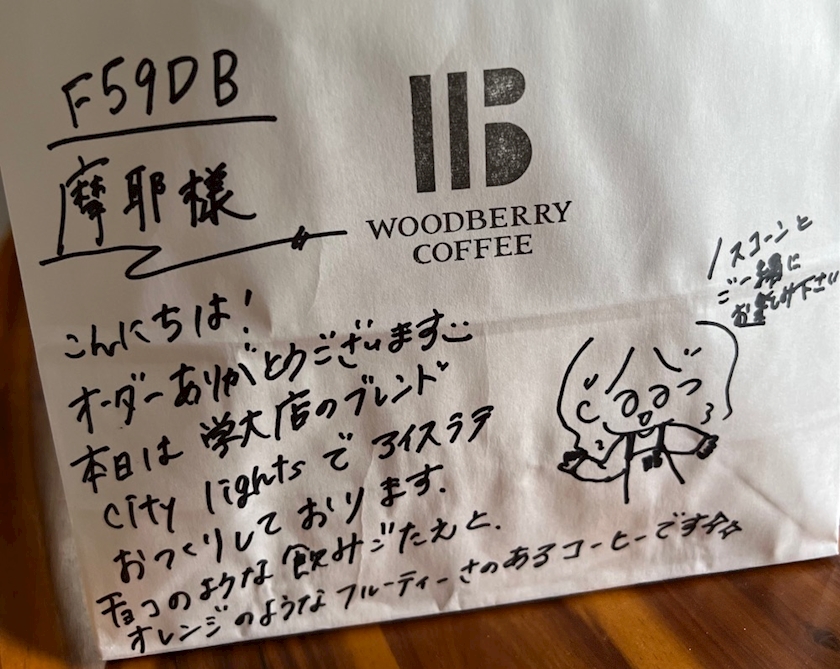 F59DB
摩耶様
WOODBERRY
COFFEE
スコーンと
ご一緒に
お楽しみ下さい
こんにちは!
オーダーありがとうございます
本日は 学大店のブレンド
city lightsで アイスラテ
おつくりしております.
チョコのような飲みごたえと.
オレンジのようなフルーティーさのあるコーヒーです☆☆